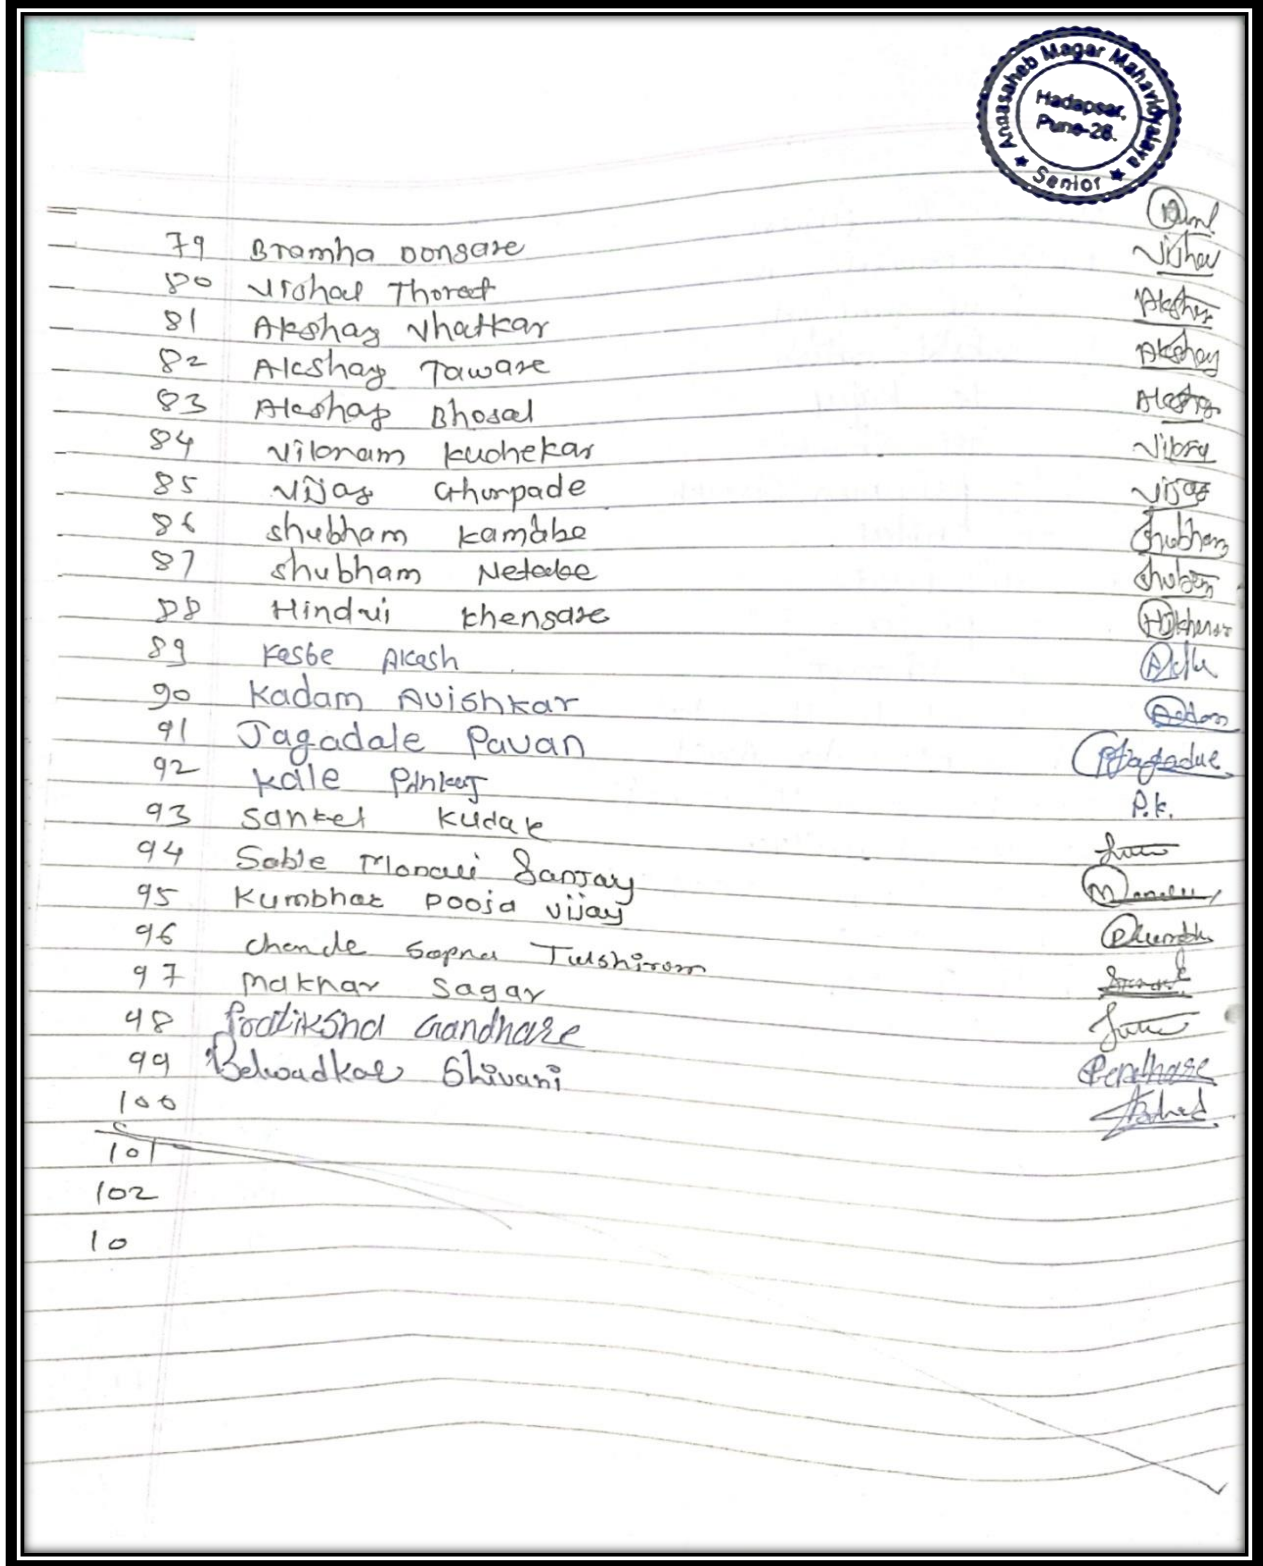 Annasaheb Magar Mahavidyalaya
Hadapsar,
Pune-28.
★ Senior ★
79 Bramha Dongare
80 Vishal Thorat Vishal
81 Akshay Vhatkar Akshay
82 Akshay Taware Akshay
83 Akshay Bhosal Akshay
84 Kuchekar
85 Vijay Ghurpade Vijay
86 Shubham Shubham
87 Shubham Shubham
88 Hindvi Khengare
89 Kasbe Akash
90 Kadam Avishkar
91 Jagadale Pavan PJagadale
92 Kale Pankaj P.k.
93 Sanket Kudale
94 Sable Monali Sanjay
95 Kumbhar Pooja Vijay
96 Chande Sapna Tulshiram
97 Makhar Sagar
98 Pratiksha Gandhare
99 Belwadkar Shivani
100
101
102
10